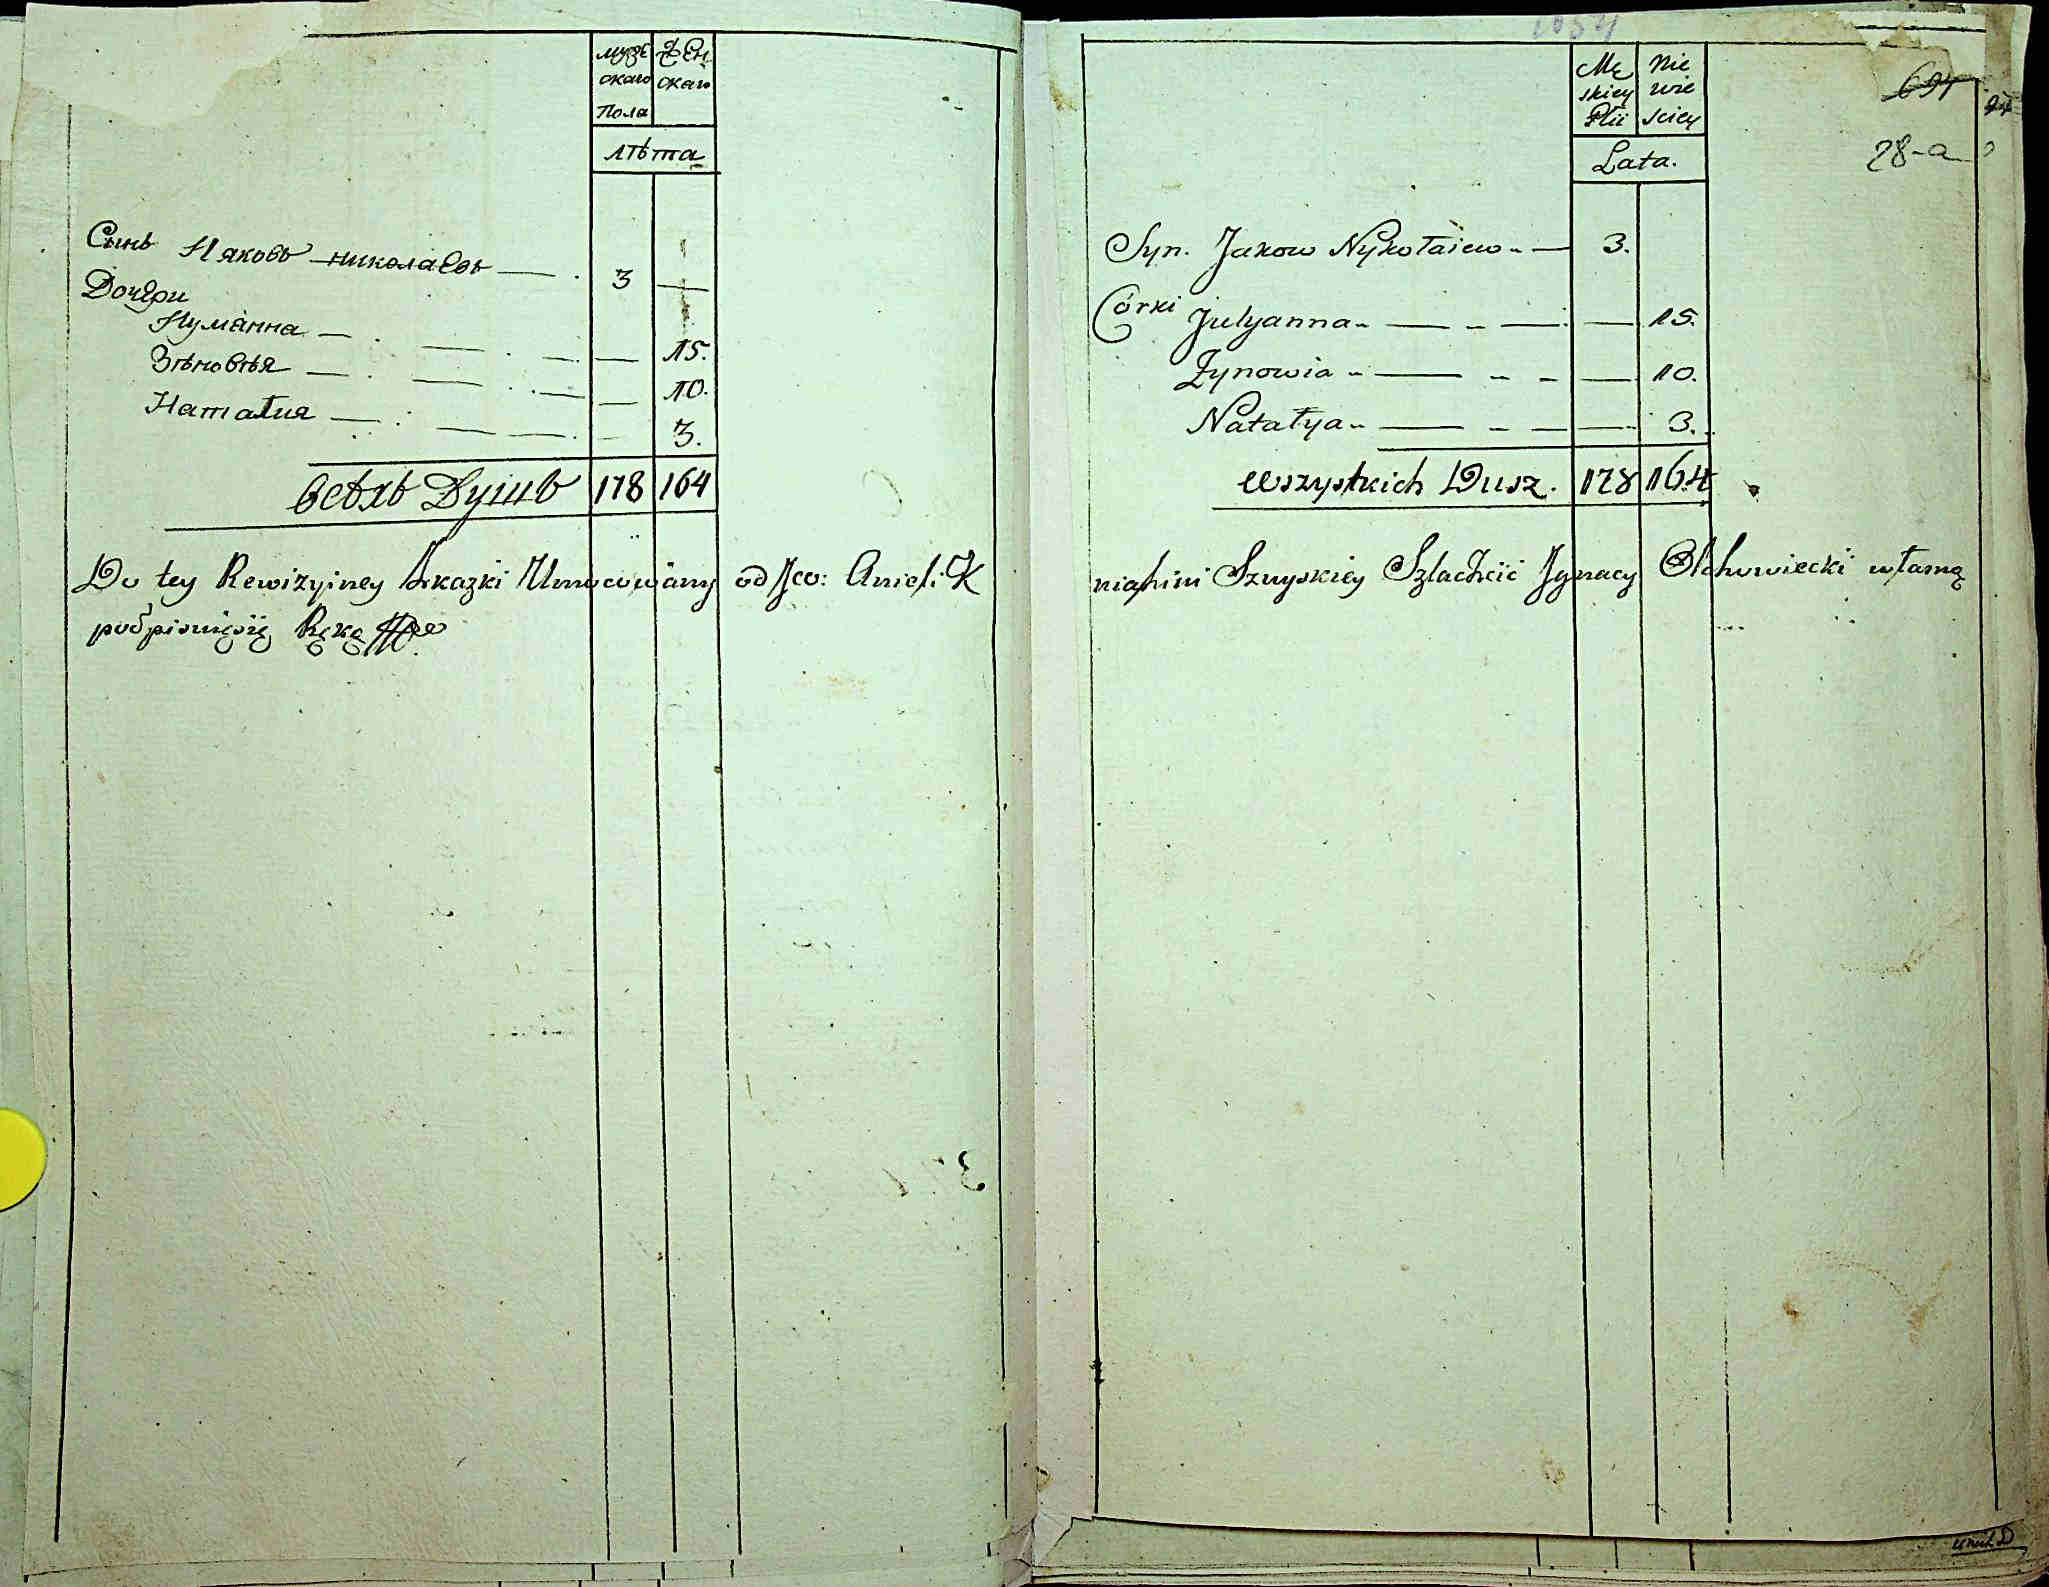 мужескаго Пола
женскаго
лѣта
Сынъ Ияковъ николаевъ 3 —
Дочери
Иулианна — 15.
Зѣновѣя — 10.
Наталия — 3.
всѣхъ Душъ 178 164
Do tey Rewizyiney Skazki Umocowany od Jco: Anieli K
podpisuięsię Ręką
Męskiey Płii
Niewiesciey
Lata.
694
28-a
Syn. Jakow Nykołaiew 3.
Córki Julyanna — 15.
Zynowia — 10.
Natałya — 3.
Wszystkich Dusz. 178 164
niahini Szuyskiey Szlachcic Jgnacy własną